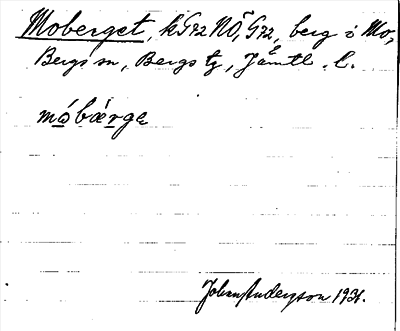 Moberget, kG72NÖ, G72, berg i Mo,
Bergs sn, Bergs tg, Jämtl. l.
móbǽrge
Johan Anderzson 1931.